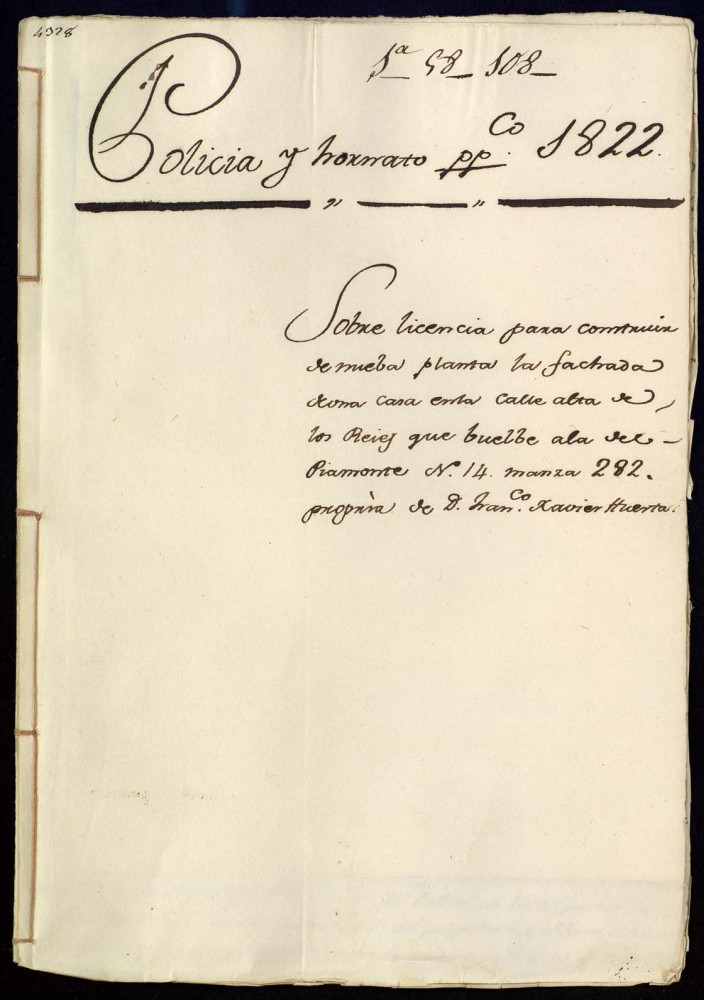 4328
1ª 58_ 108_
Policia y hornato pp.co 1822.
Sobre licencia para construir
de nueba planta la fachada
de una casa en la Calle alta de
los Reies que buelbe ala del-
Piamonte N.º 14. manza 282.
propria de D. Fran.co Xavier Huerta.